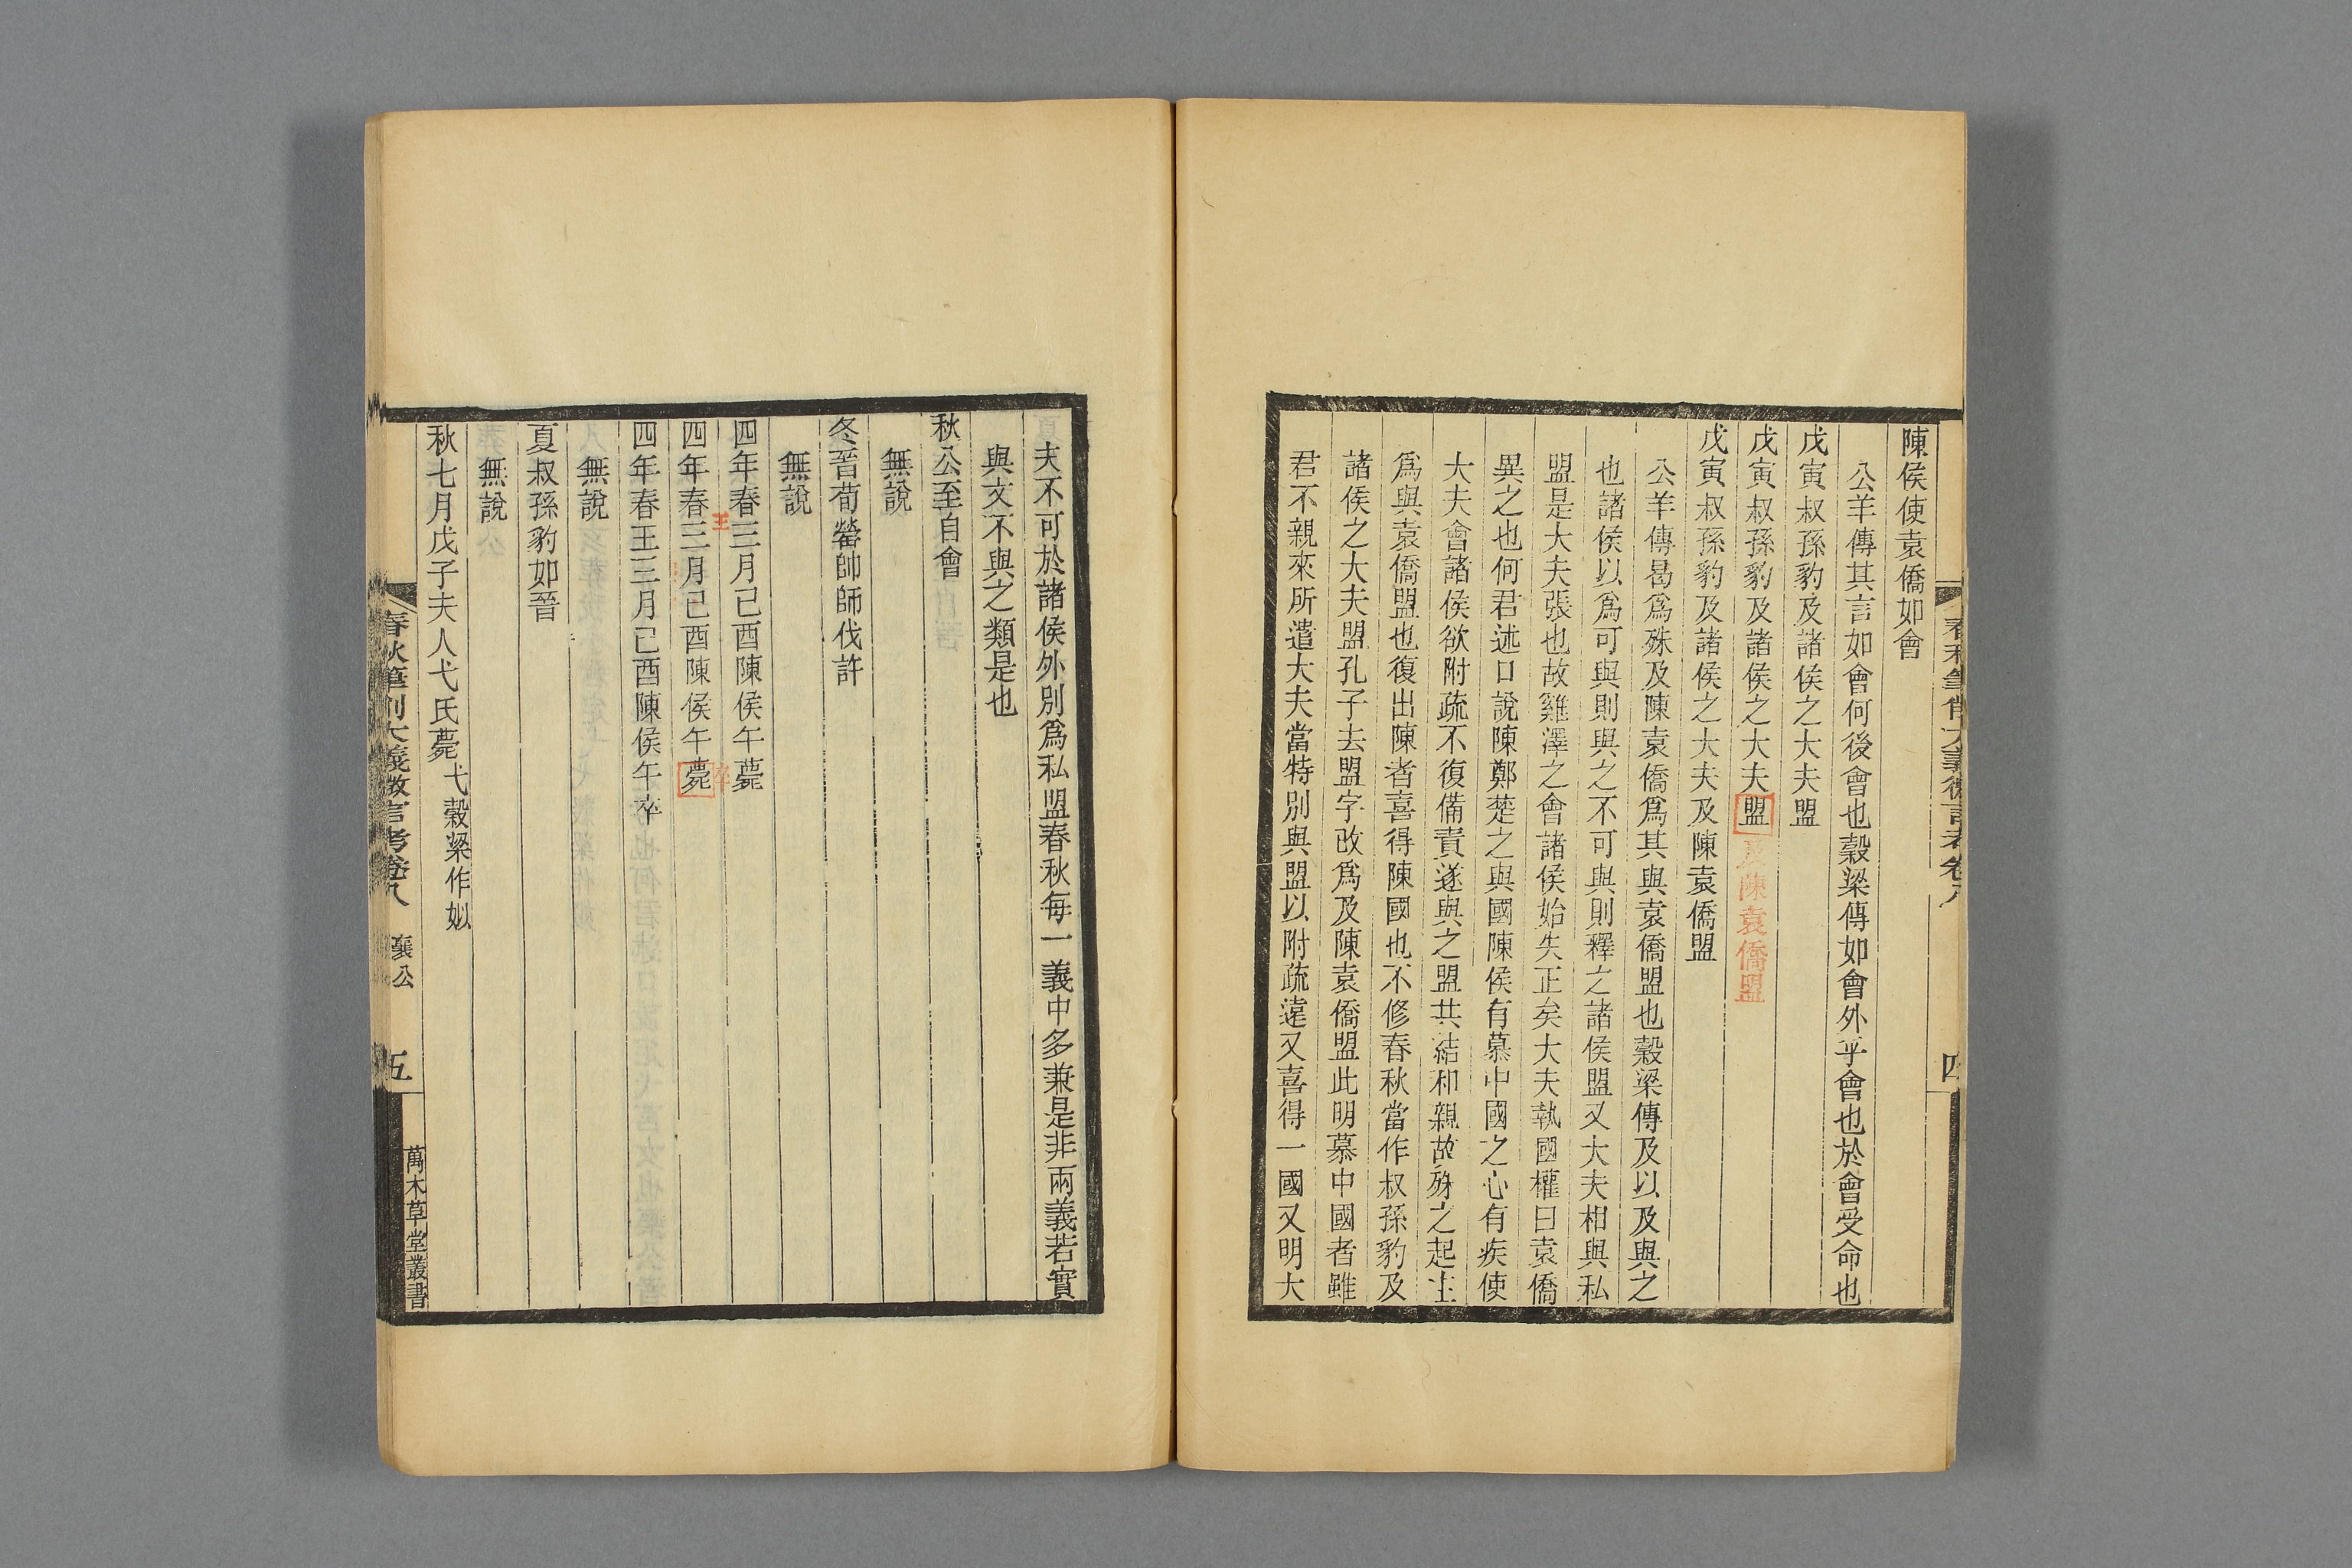 陳侯使袁僑如會
公羊傳其言如會何後會也穀梁傳如會外乎會也於會受命也
戊寅叔孫豹及諸侯之大夫盟
戊寅叔孫豹及諸侯之大夫盟及陳袁僑盟
戊寅叔孫豹及諸侯之大夫及陳袁僑盟
公羊傳曷爲殊及陳袁僑爲其與袁僑盟也穀梁傳及以及與之
也諸侯以爲可與則與之不可與則釋之諸侯盟又大夫相與私
盟是大夫張也故雞澤之會諸侯始失正矣大夫執國權曰袁僑
異之也何君述口說陳鄭楚之與國陳侯有慕中國之心有疾使
大夫會諸侯欲附疏不復備責遂與之盟共結和親故殊之起主
爲與袁僑盟也復出陳者喜得陳國也不修春秋當作叔孫豹及
諸侯之大夫盟孔子去盟字改爲及陳袁僑盟此明慕中國者雖
君不親來所遣大夫當特別與盟以附疏遠又喜得一國又明大
春秋筆削大義微言考卷八
四
夫不可於諸侯外別爲私盟春秋每一義中多兼是非兩義若實
與文不與之類是也
秋公至自會
無說
冬晉荀罃帥師伐許
無說
四年春三月己酉陳侯午薨
四年春王三月己酉陳侯午薨卒
四年春王三月己酉陳侯午卒
無說
夏叔孫豹如晉
無說
秋七月戊子夫人弋氏薨弋穀梁作姒
春秋筆削大義微言考卷八 襄公 五 萬木草堂叢書